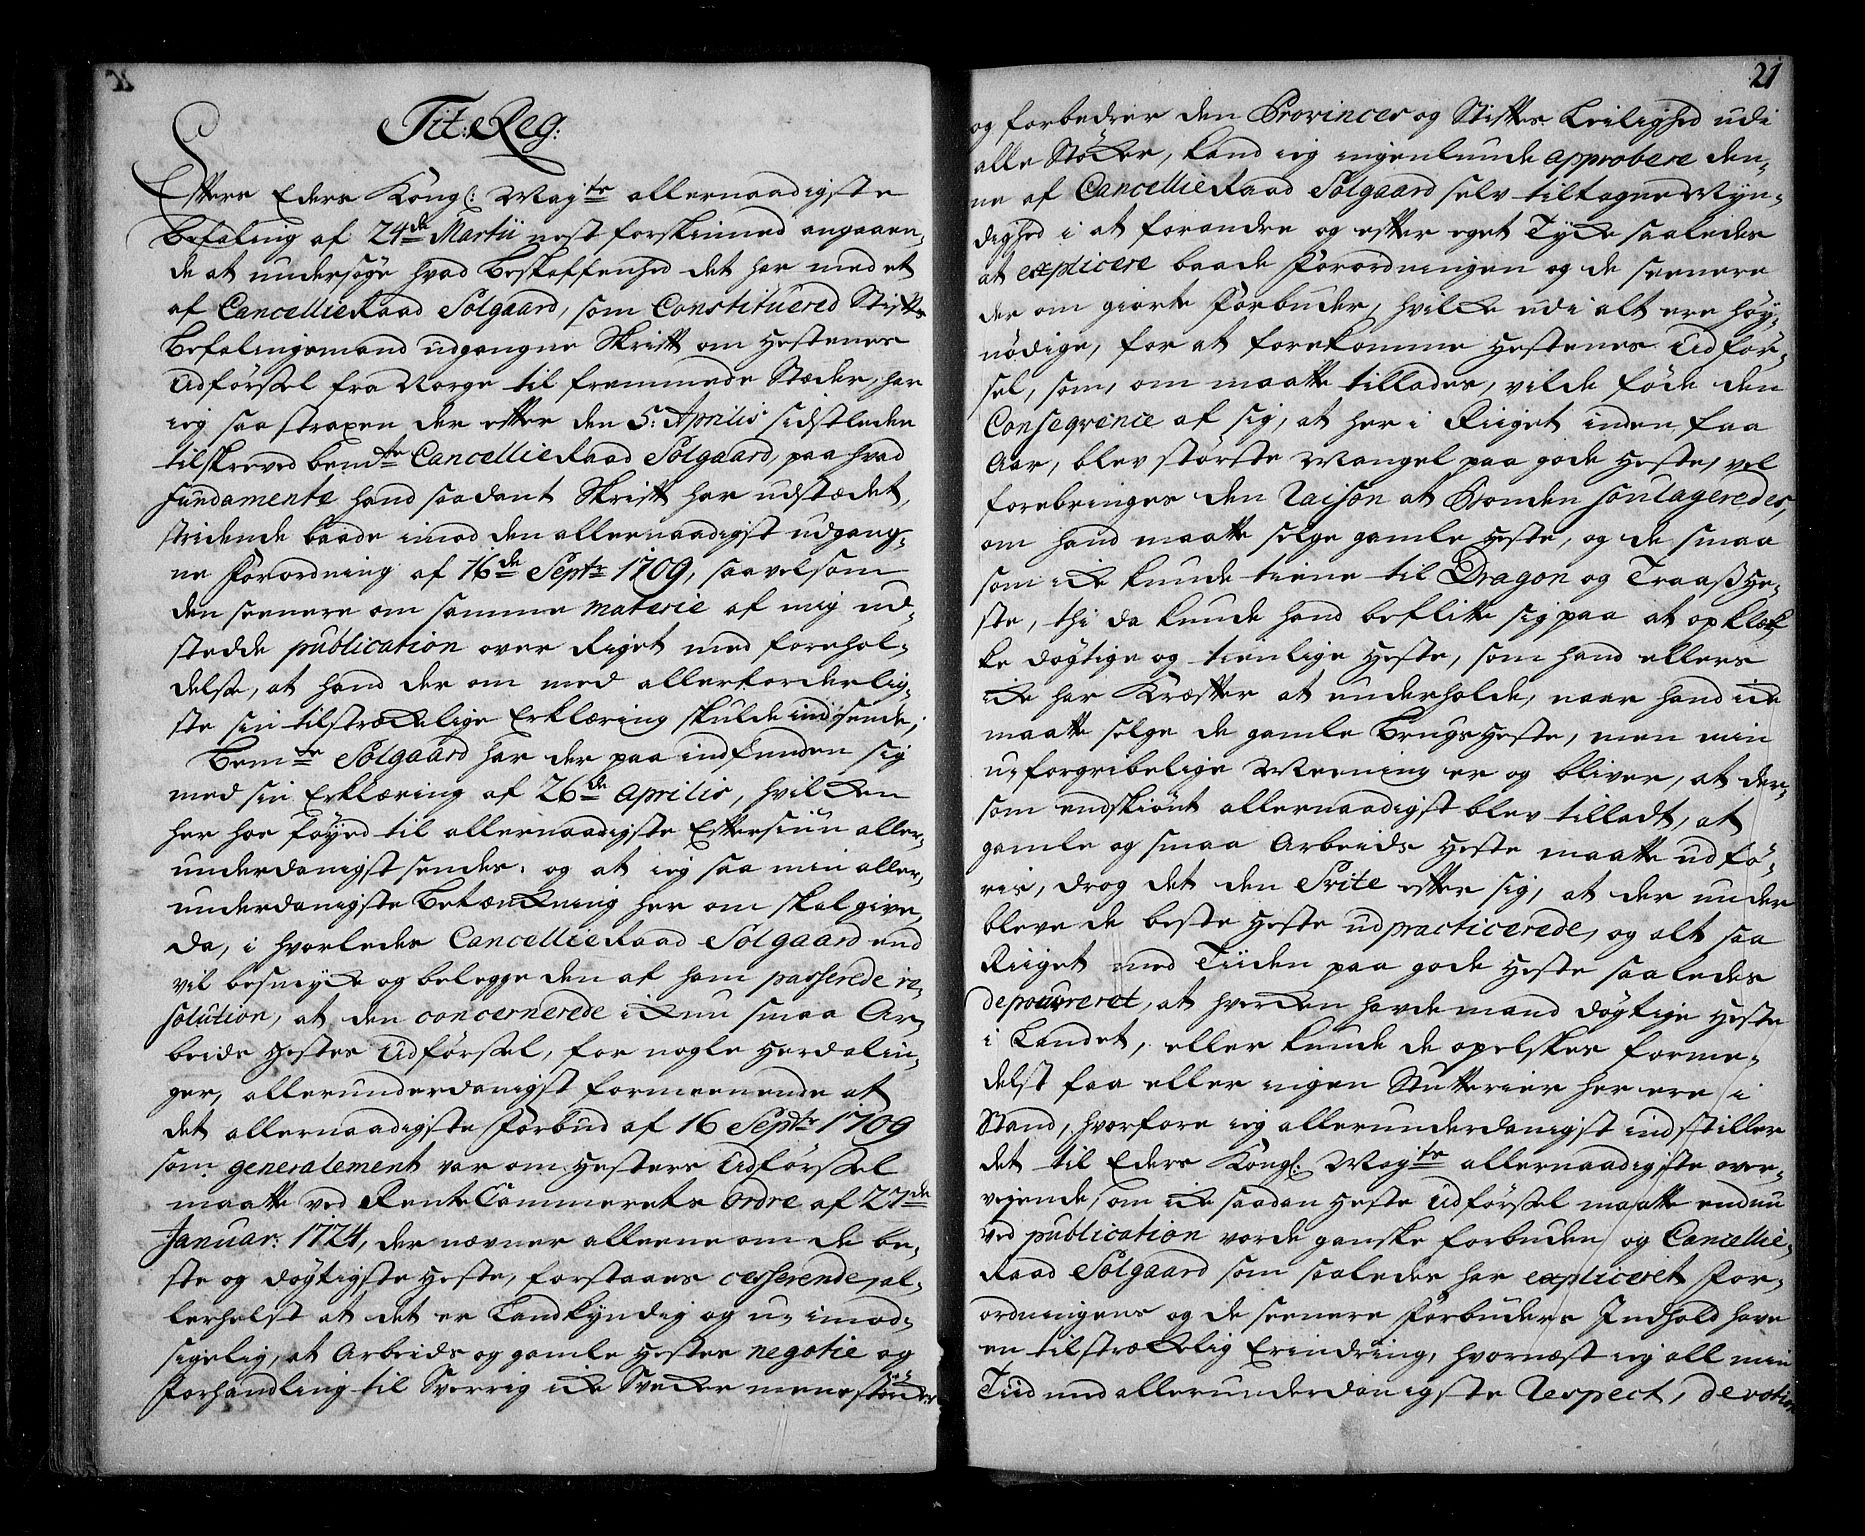 Tit: Reg:
Efftere Eders Kongl: Maj.te allernaadigste
Befaling af 24de Martii nest forskinned angaaen-
de at undersøge hvad beskaffenhed det har med et
af Cancellie Raad Solgaard, som Constituered Stifts
Befalingsmand udgangne Skrifft om Hestenes
Udførssel fra Norge til fremmede Stæder, har
ieg saa straxen der effter den 5: Aprilis sidstleden
tilskreved bem.te Cancellie Raad Solgaard, paa hvad
fundamente hand saadant Skrifft har udstædet,
stridende baade imod den allernaadigst udgang-
ne Forordning af 16de Septr 1709, saavelsom
den seenere om samme materie af mig ud-
stedde publication over Riget med forehol-
delse, at hand der om med allerforderlig-
ste sin tilstræckelige Erklæring skulde indsende,
Bem.te Solgaard har der paa indfunden sig
med sin Erklæring af 26de Aprilis, hvilcken
her hos føyed til allernaadigste Effterseun aller-
underdanigst sendes, og at ieg saa min aller-
underdanigste Betænckning her om skal give,
da, i hvorledes Cancellie Raad Solgaard end
vil besmycke og belegge den af ham passerede re-
solution, at den concernerede ickun smaa Ar-
beids Hestes Udførssel, for nogle Herdalin-
ger, allerunderdanigst formeenende at
det allernaadigste Forbud af 16 Septr 1709
som generalement var om Hesters Udførssel
maatte ved Rente Cammerets Ordre af 27de
Januar: 1724, der nævner alleene om de be-
ste og døgtigste Heste, forstaaes cesserende, al-
lerhelst at det er Landkyndig og u-imod-
sigelig, at Arbeids og gamle Hestes negotie og
Forhandling til Sverrig icke Svecker mens
21
og forbedrer den Provinces og Stifftes Leilighed udi
alle Stöcker, kand ieg ingenlunde approbere den-
ne af Cancellie Raad Solgaard selv tiltagne Myn-
dighed i at forandre og effter eget Tycke saaledes
at explicere baade Forordningen og de seenere
der om giorte Forbuder, hvilcke udi alt ere høy-
nödige, for at forekomme Hestenes Udför-
sel, som, om maatte tillades, vilde föde den
Conseqvence af sig, at her i Riiget inden faa
Aar, blev störste Mangel paa gode Heste, vel
forebringes den Raison at Bonden soulageredes,
om hand maatte selge gamle Heste, og de smaa
som icke kunde tiene til Dragon og Traaß He-
ste, thi da kunde hand beflitte sig paa at opklæk-
ke døgtige og tienlige Heste, som hand ellers
icke har Kræffter at underholde, naar hand icke
maatte selge de gamle Brugs Heste, men min
u-forgribelige Meening er og bliver, at der-
som endskiönt allernaadigst blev tilladt, at
gamle og smaa Arbeids Heste maatte udfö-
ris, drog det den Svite effter sig, at der under
bleve de beste Heste udpracticerede, og alt saa
Riiget med Tiiden paa gode Heste saaledes
depouvreret, at hvercken havde mand døgtige Heste
i Landet, eller kunde de opelskes forme-
delst faa eller ingen Stutterier her ere i
Stand, hvorfore ieg allerunderdanigst indstiller
det til Eders Kongl: Maj.te allernaadigste over-
vejende, om icke saadan Heste Udførssel maatte endnu
ved publication vorde ganske forbuden og Cancellie-
Raad Solgaard som saaledes har expliceret For-
ordningens og de seenere Forbuders Indhold have
en tilstrækkelig Erindring, hvornæst ieg all min
Tiid med allerunderdanigste Respect, devotion